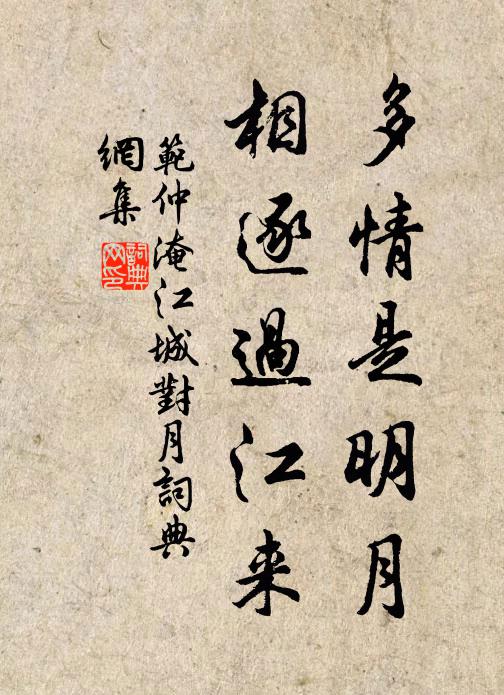 多情是明月
相逐過江来
範仲淹江城對月詞典
網集
詞典
网印